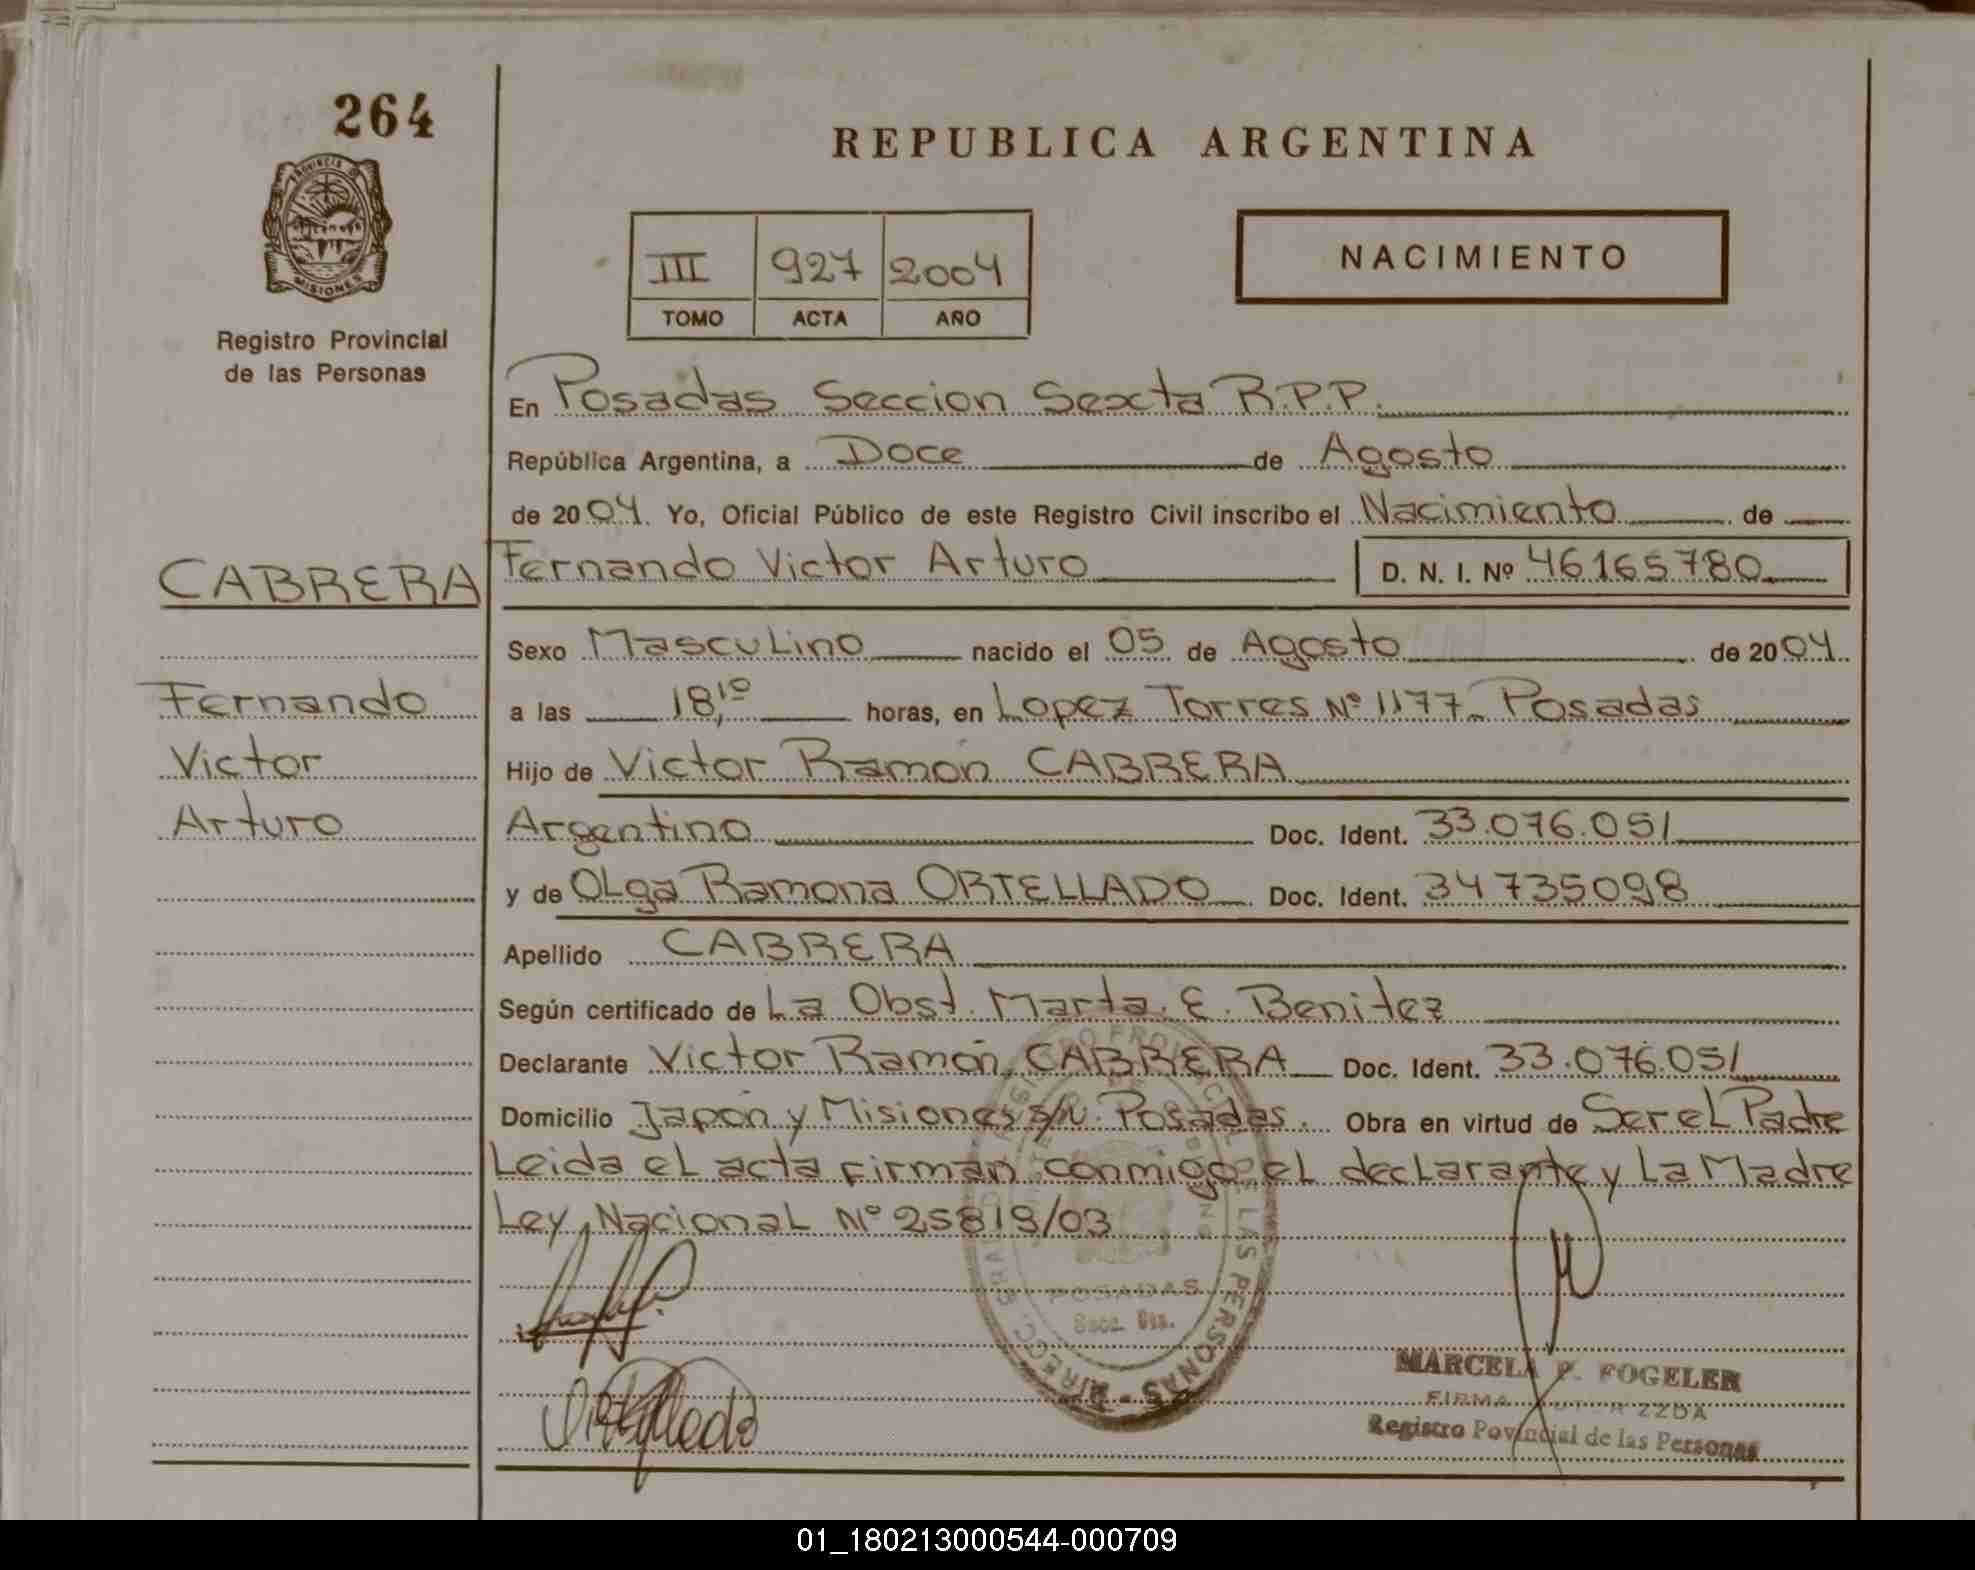 264
REPUBLICA ARGENTINA
PROVINCIA DE
MISIONES
Registro Provincial
de las Personas
III 927 2004
TOMO ACTA AÑO
NACIMIENTO
En Posadas Seccion Sexta R.P.P.
República Argentina, a Doce de Agosto
de 2004. Yo, Oficial Público de este Registro Civil inscribo el Nacimiento de
CABRERA
Fernando Victor Arturo D. N. I. Nº 46165780
Sexo Masculino nacido el 05 de Agosto de 2004.
Fernando
a las 18,10 horas, en Lopez Torres Nº 1177_ Posadas
Victor
Hijo de Victor Ramón CABRERA
Arturo
Argentino Doc. Ident. 33.076.051
y de Olga Ramona ORTELLADO Doc. Ident. 34735098
Apellido CABRERA
Según certificado de La Obst. Marta. E. Benitez
Declarante Victor Ramón CABRERA Doc. Ident. 33.076.051
Domicilio Japón y Misiones s/n. Posadas. Obra en virtud de Ser el Padre
Leida el acta firman conmigo el declarante y La Madre
Ley Nacional Nº 25819/03
POSADAS
Secc. 6ta.
MARCELA P. FOGELER
FIRMA
Registro Povincial de las Personas
01_180213000544-000709